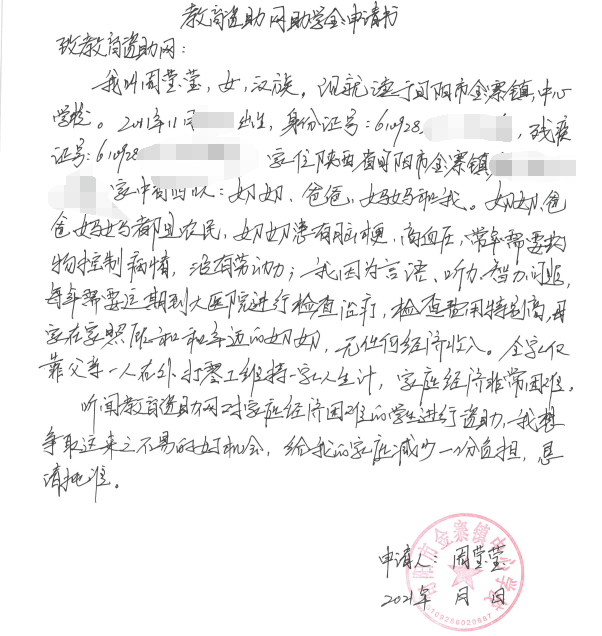 教育资助网助学金申请书
致教育资助网：
我叫周莹莹，女，汉族，现就读于旬阳市金寨镇中心
学校。2011年11月 出生，身份证号：610928 ，残疾
证号：610928 家住陕西省旬阳市金寨镇
家中有四口人：奶奶、爸爸，妈妈和我。奶奶、爸
爸妈妈都是农民，奶奶患有脑梗，高血压，常年需要药
物控制病情，没有劳动力；我因为言语、听力、智力问题，
每年需要定期到大医院进行检查治疗，检查费用特别高，母
亲在家照顾我和年迈的奶奶，无任何经济收入。全家仅
靠父亲一人在外打零工维持一家人生计，家庭经济非常困难。
听闻教育资助网对家庭经济困难的学生进行资助，我想
争取这来之不易的好机会，给我的家庭减少一份负担，恳
请批准。
申请人：周莹莹
2021年 月 日
旬阳市金寨镇中心学校